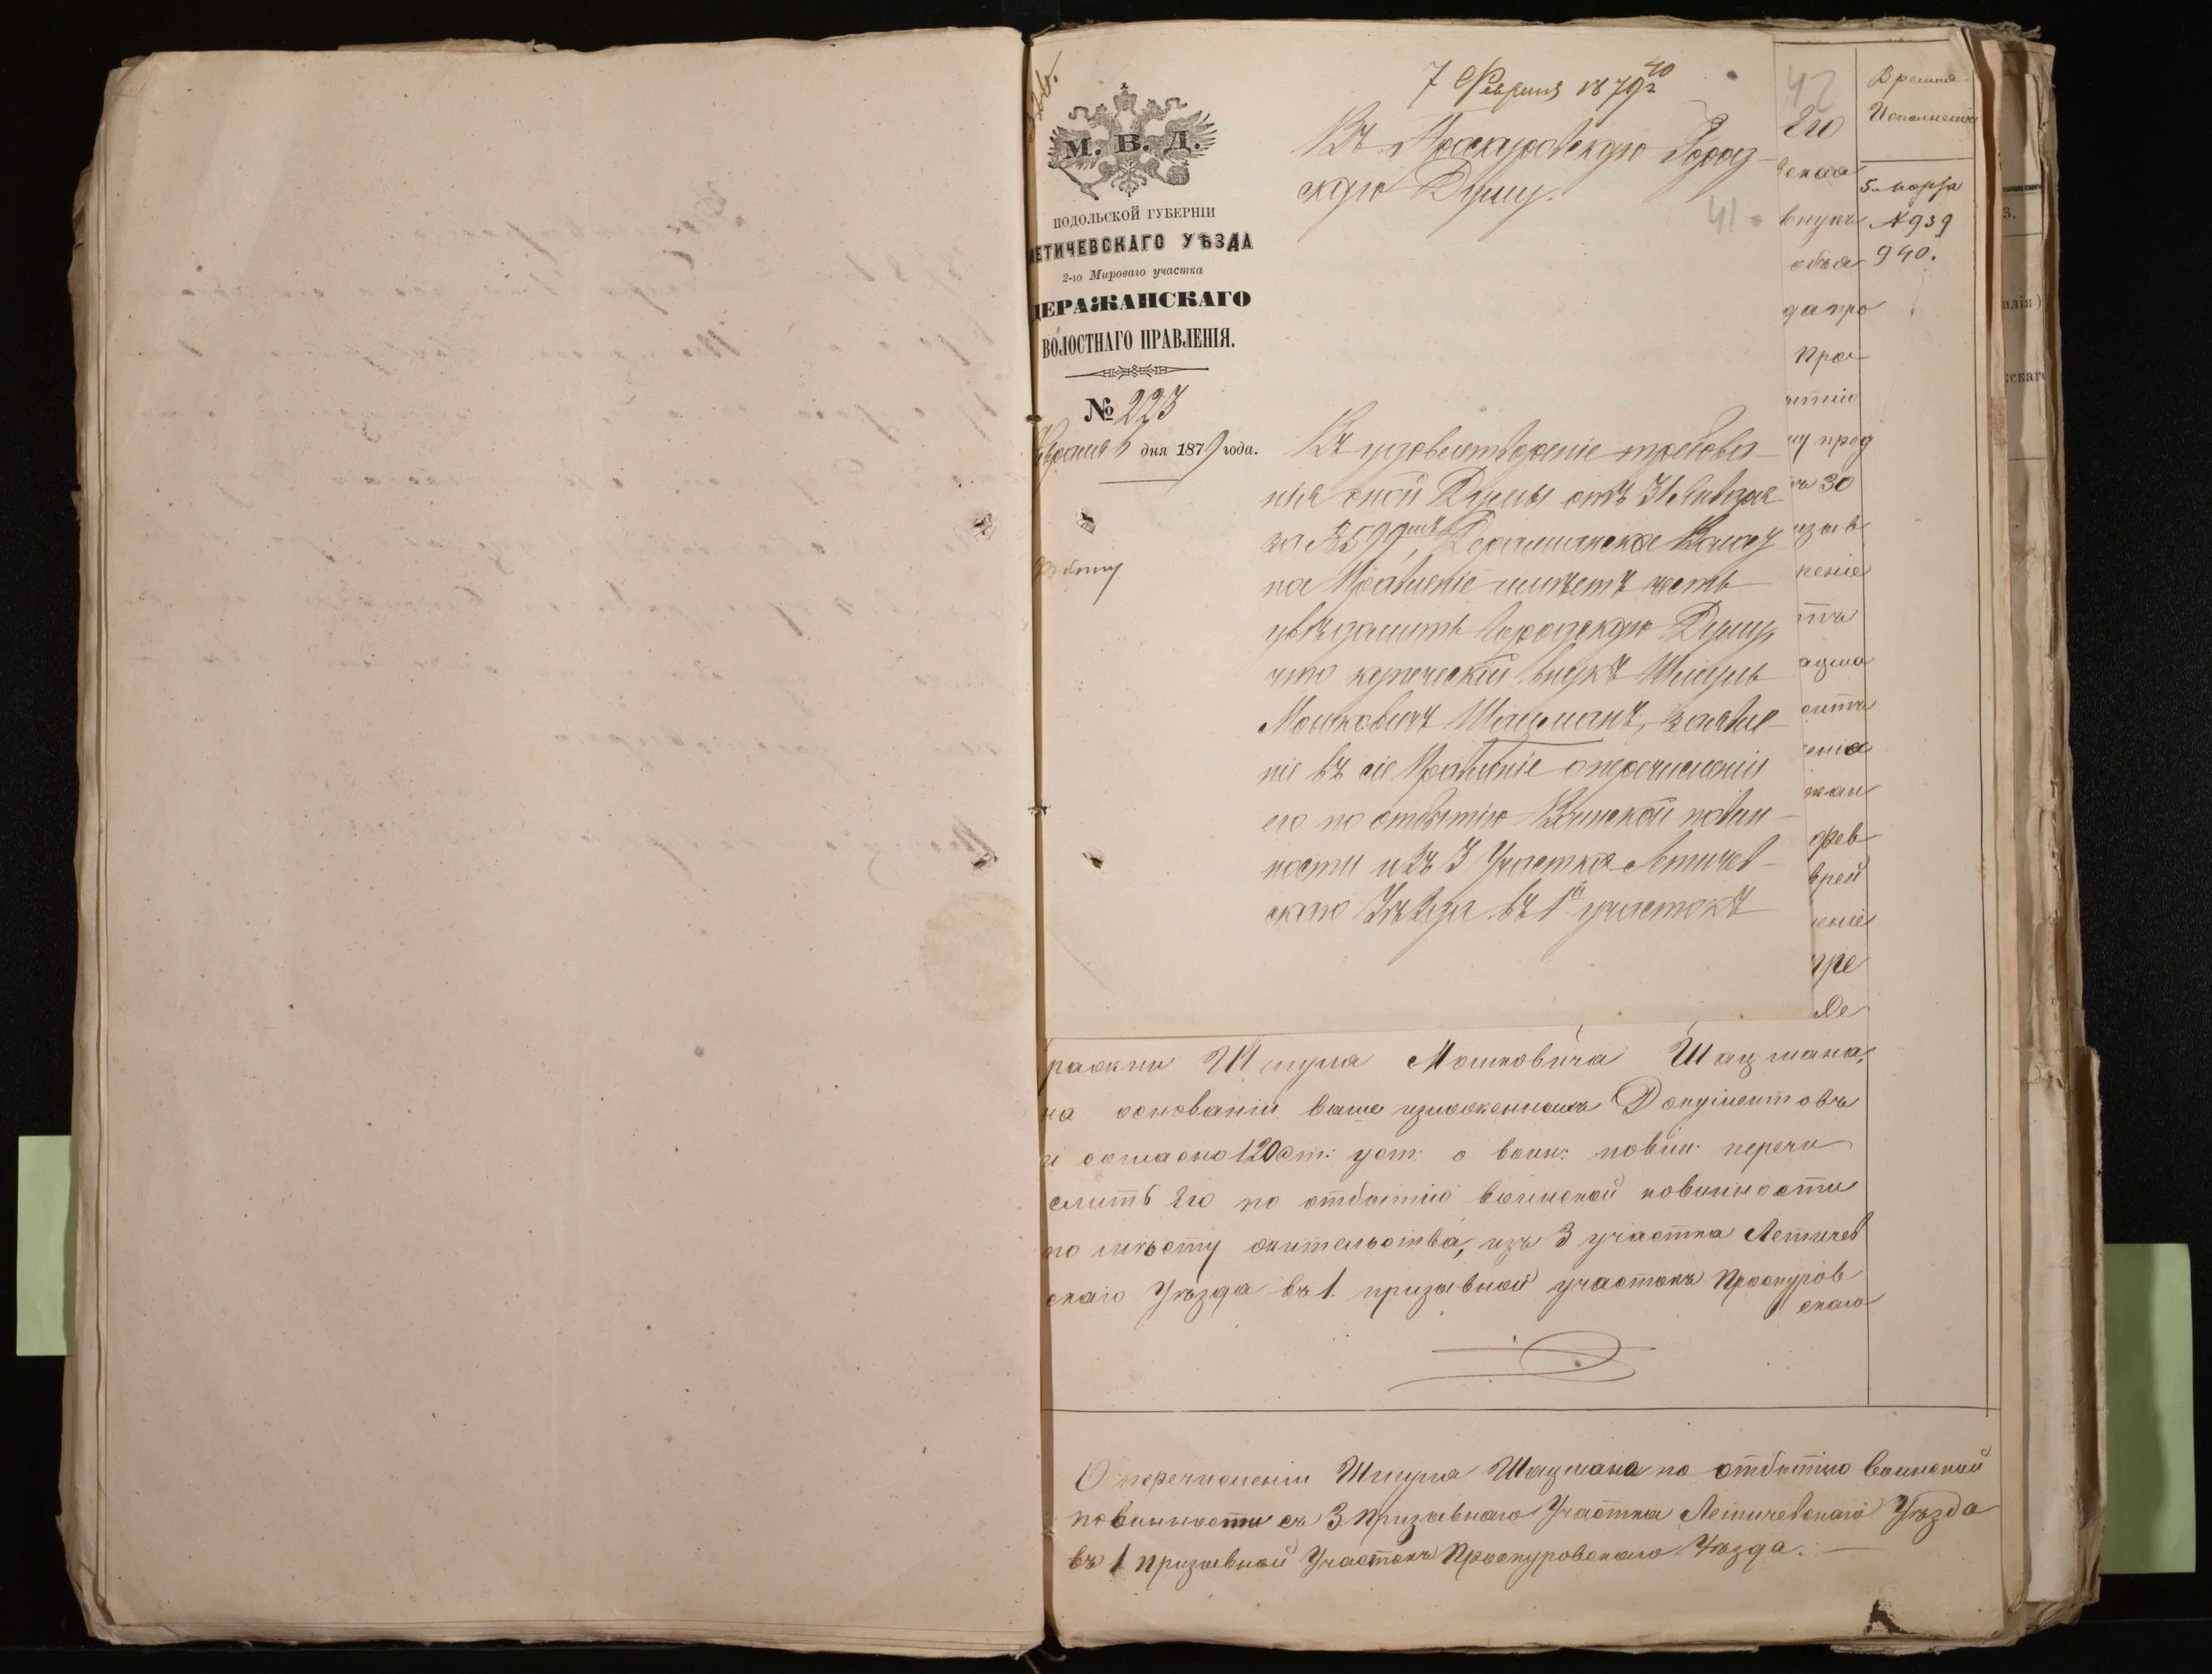 М. В. Д.
ПОДОЛЬСКОЙ ГУБЕРНІИ
ЛЕТИЧЕВСКАГО УѢЗДА
2-го Мироваго участка
ДЕРАЖАНСКАГО
ВОЛОСТНАГО ПРАВЛЕНІЯ.
№ 223
Февраля 6 дня 1879 года.
7 Февраля 1879 г
40
Въ Проскуровскую Город
скую Думу.
41
Въ удовлетвореніе требова
нія оной Думы отъ 31 Января
за № 599, Деражнянское Волост
ное Правленіе имѣетъ честь
увѣдомить Городскую Думу,
что купеческій внукъ Шмуль
Мошковичъ Шацманъ, заявле
ніе въ сіе Правленіе о перечисленіи
его по отбытію Воинской повин
ности изъ 3 Участка Летичев
скаго Уѣзда въ 1й участокъ
42
Его
ческа
внукъ
объя
да про
Про
ытію
му пред
30
изъ в
неніе
тъ
ацма
енія
жан
Фев
врей
леніе
Ле
Время
Исполненія
5 марта
№ 939
940.
ражни Шмуля Мошковича Шацмана,
на основаніи выше изложенныхъ Документовъ
и согласно 120 ст: уст: о воин: повин: перечи
слить Его по отбытію воинской повинности
по мѣсту жительства, изъ 3 участка Летичев
скаго Уѣзда въ 1. призывной участокъ Проскуров
скаго
О перечисленіи Шмуля Шацмана по отбытію воинской
повинности съ 3. Призывнаго Участка Летичевскаго Уѣзда
въ 1 Призывной Участокъ Проскуровскаго Уѣзда.